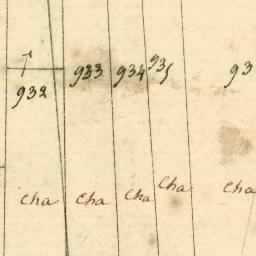 932 933 934 935 93
cha cha cha cha cha